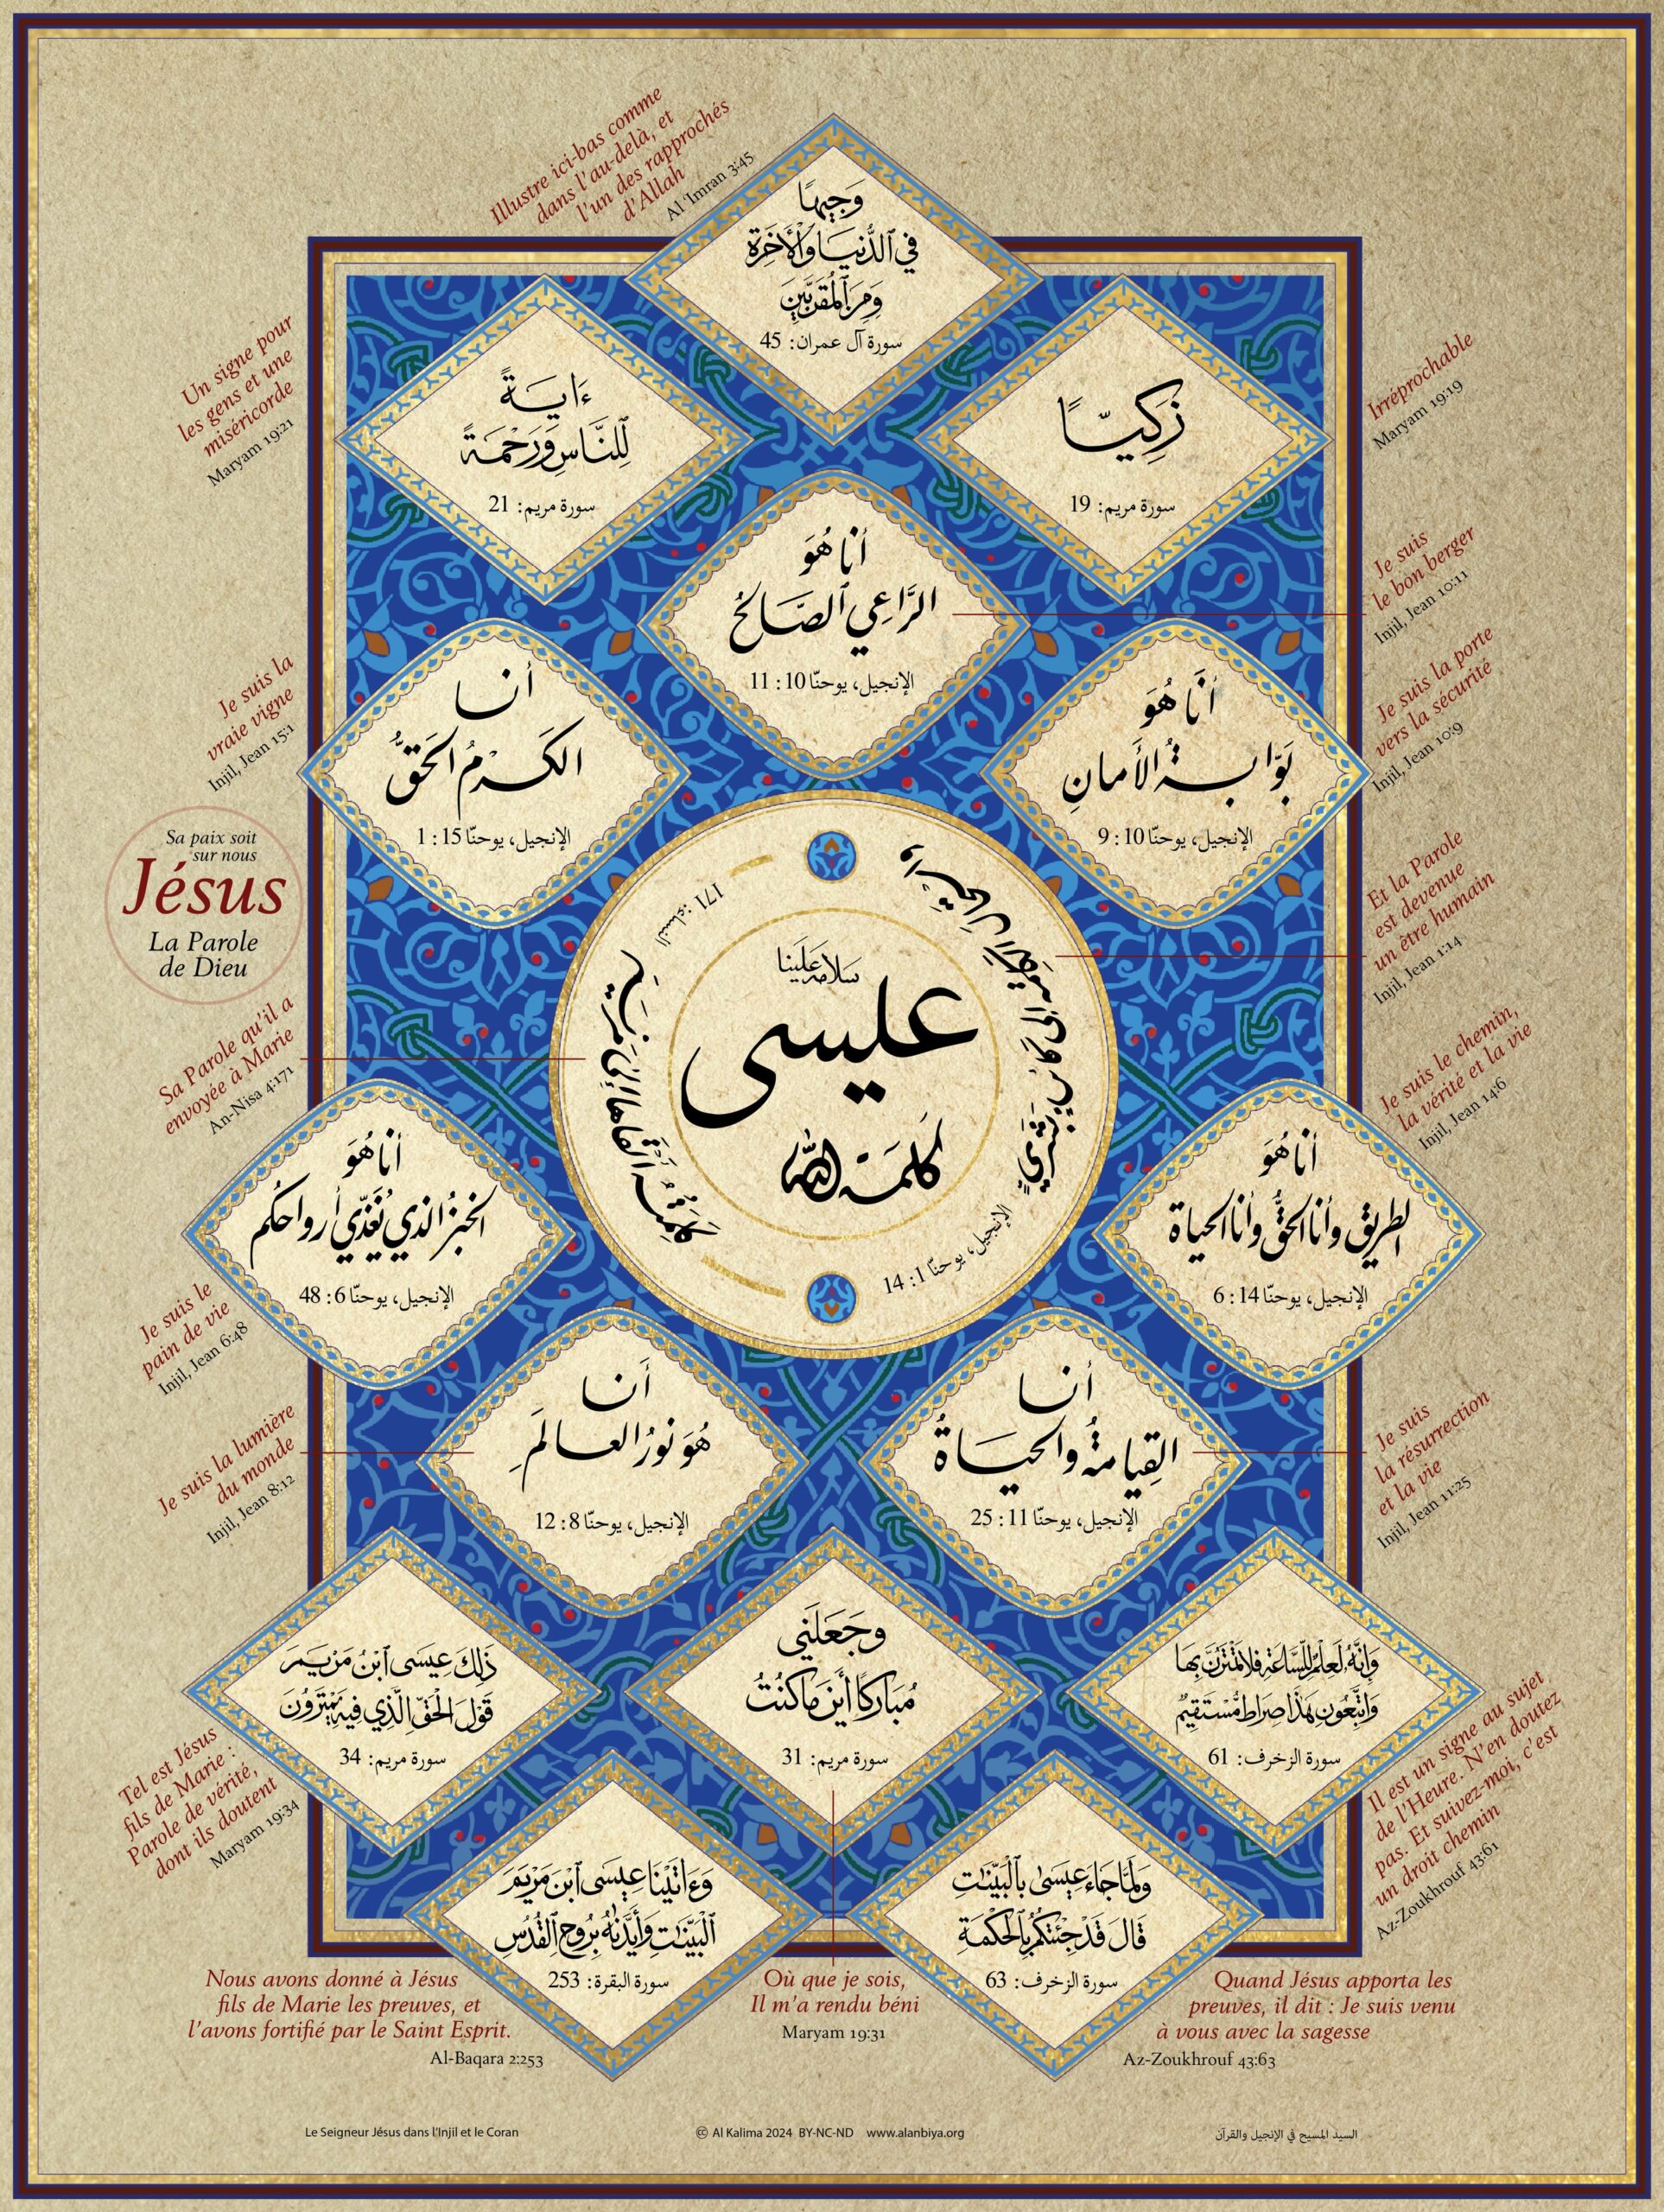 Illustre ici-bas comme
dans l'au-delà, et
l'un des rapprochés
d'Allah
Al 'Imran 3:45
وَجِيهًا
فِي ٱلدُّنْيَا وَٱلْأَخِرَةِ
وَمِنَ ٱلْمُقَرَّبِينَ
سورة آل عمران: 45
Un signe pour
les gens et une
miséricorde
Maryam 19:21
ءَايَةً
لِّلنَّاسِ وَرَحْمَةً
سورة مريم: 21
زَكِيًّا
سورة مريم: 19
Irréprochable
Maryam 19:19
أنا هُوَ
الرَّاعِي ٱلصَّالِحُ
الإنجيل، يوحنّا 10: 11
Je suis
le bon berger
Injil, Jean 10:11
Je suis la
vraie vigne
Injil, Jean 15:1
أنا
الكَرمُ الحَقُّ
الإنجيل، يوحنّا 15: 1
أنَا هُوَ
بَوّابةُ الأمانِ
الإنجيل، يوحنّا 10: 9
Je suis la porte
vers la sécurité
Injil, Jean 10:9
Sa paix soit
sur nous
Jésus
La Parole
de Dieu
سلامه علينا
عيسى
كلمة الله
النساء: 171
وكلمته ألقاها إلى مريم
الإنجيل، يوحنّا 1: 14
Et la Parole
est devenue
un être humain
Injil, Jean 1:14
Sa Parole qu'il a
envoyée à Marie
An-Nisa 4:171
أنا هُوَ
الخبزُ الذي يُغَذّي أرواحكُم
الإنجيل، يوحنّا 6: 48
Je suis le
pain de vie
Injil, Jean 6:48
Je suis le chemin,
la vérité et la vie
Injil, Jean 14:6
أنا هُوَ
الطريق وأنا الحقُّ وأنا الحياة
الإنجيل، يوحنّا 14: 6
Je suis la lumière
du monde
Injil, Jean 8:12
أنا
هُوَ نورُ العالَمِ
الإنجيل، يوحنّا 8: 12
أنا
القِيامةُ والحياةُ
الإنجيل، يوحنّا 11: 25
Je suis
la résurrection
et la vie
Injil, Jean 11:25
ذَٰلِكَ عِيسَى ٱبْنُ مَرْيَمَ
قَوْلَ ٱلْحَقِّ ٱلَّذِي فِيهِ يَمْتَرُونَ
سورة مريم: 34
Tel est Jésus
fils de Marie :
Parole de vérité,
dont ils doutent
Maryam 19:34
وَجَعَلَنِي
مُبَارَكًا أَيْنَ مَا كُنْتُ
سورة مريم: 31
وَإِنَّهُ لَعِلْمٌ لِّلسَّاعَةِ فَلَا تَمْتَرُنَّ بِهَا
وَٱتَّبِعُونِ هَٰذَا صِرَاطٌ مُّسْتَقِيمٌ
سورة الزخرف: 61
Il est un signe au sujet
de l'Heure. N'en doutez
pas. Et suivez-moi, c'est
un droit chemin
Az-Zoukhrouf 43:61
وَءَاتَيْنَا عِيسَى ٱبْنَ مَرْيَمَ
ٱلْبَيِّنَٰتِ وَأَيَّدْنَٰهُ بِرُوحِ ٱلْقُدُسِ
سورة البقرة: 253
وَلَمَّا جَاءَ عِيسَىٰ بِٱلْبَيِّنَٰتِ
قَالَ قَدْ جِئْتُكُم بِٱلْحِكْمَةِ
سورة الزخرف: 63
Nous avons donné à Jésus
fils de Marie les preuves, et
l'avons fortifié par le Saint Esprit.
Al-Baqara 2:253
Où que je sois,
Il m'a rendu béni
Maryam 19:31
Quand Jésus apporta les
preuves, il dit : Je suis venu
à vous avec la sagesse
Az-Zoukhrouf 43:63
Le Seigneur Jésus dans l'Injil et le Coran
Al Kalima 2024 BY-NC-ND www.alanbiya.org
السيد المسيح في الإنجيل والقرآن